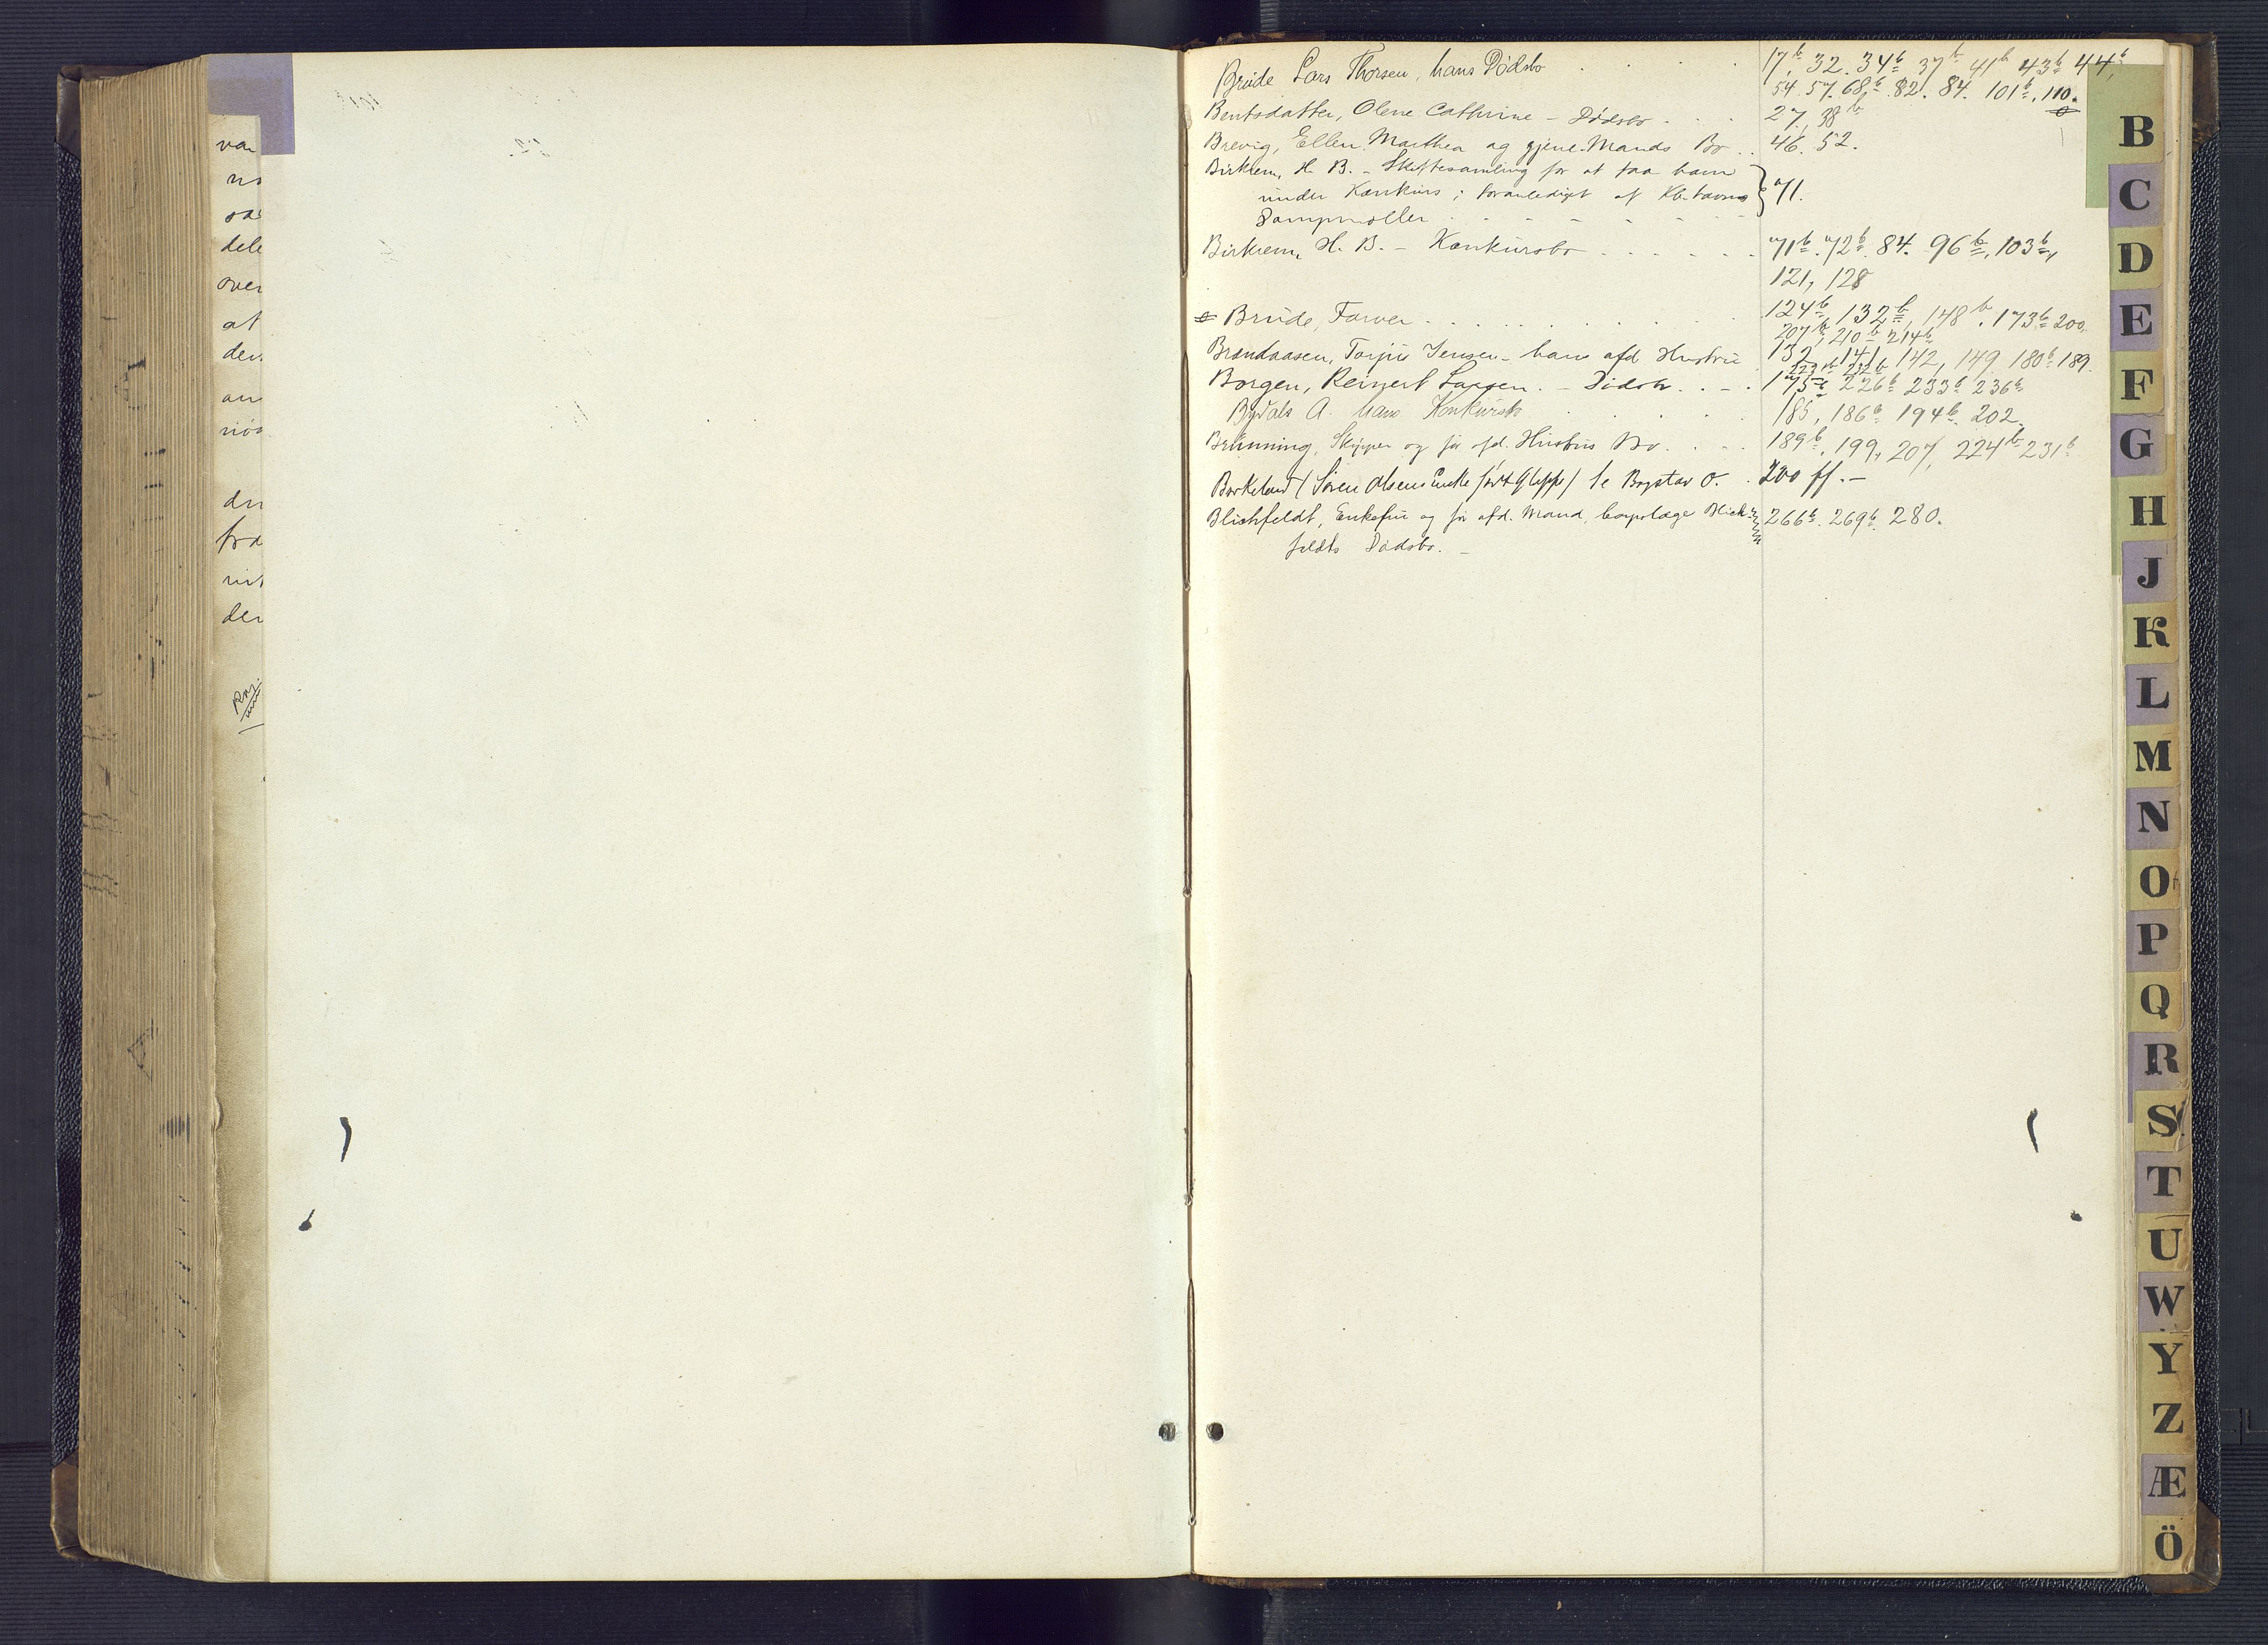 Brude Lars Thorsen, hans Dødsbo . . . . 17b, 32. 34b 37b 41b 43b 44b,
54. 57. 68b. 82. 84. 101b, 110.
Bentsdatter, Olene Cathrine – Dødsbo . . . 27, 38b
Brevig, Ellen Marthea og gjenl. Mands Bo . . 46. 52.
Birkrem, H. B. – Skiftesamling for at faa ham
under Konkurs; foranlediget af Kbhavns } 71.
Dampmøller . . . . . .
Birkrem, H. B. – Konkursbo . . . . . . 71b. 72b. 84. 96b, 103b,
121, 128
Brude, Farver . . . . . . . . 124b, 132b, 148b. 173b 200.
207b, 210b 214b
Brandaasen, Torjus Jensen – hans afd. Hustru 132, 141, 142, 149. 180b 189.
223b 232b
Borgen, Reinert Larsen. – Dødsbo . . – . 175b 226b 233b 236b
Bydals A. hans Konkursbo . . . . 185, 186b 194b. 202.
Brunning, Skipper og før afd. Hustrus Bo . . . 189b, 199, 207, 224b 231b
Borkeland (Søren Olsens Enke født Gleppe) se Bogstav O. . 200 ff. –
Blichfeldt, Enkefru og før afd. Mand, Corpslæge Blich- 266b. 269b. 280.
feldts Dødsbo. –
B
C
D
E
F
G
H
J
K
L
M
N
O
P
Q
R
S
T
U
W
Y
Z
Æ
Ö